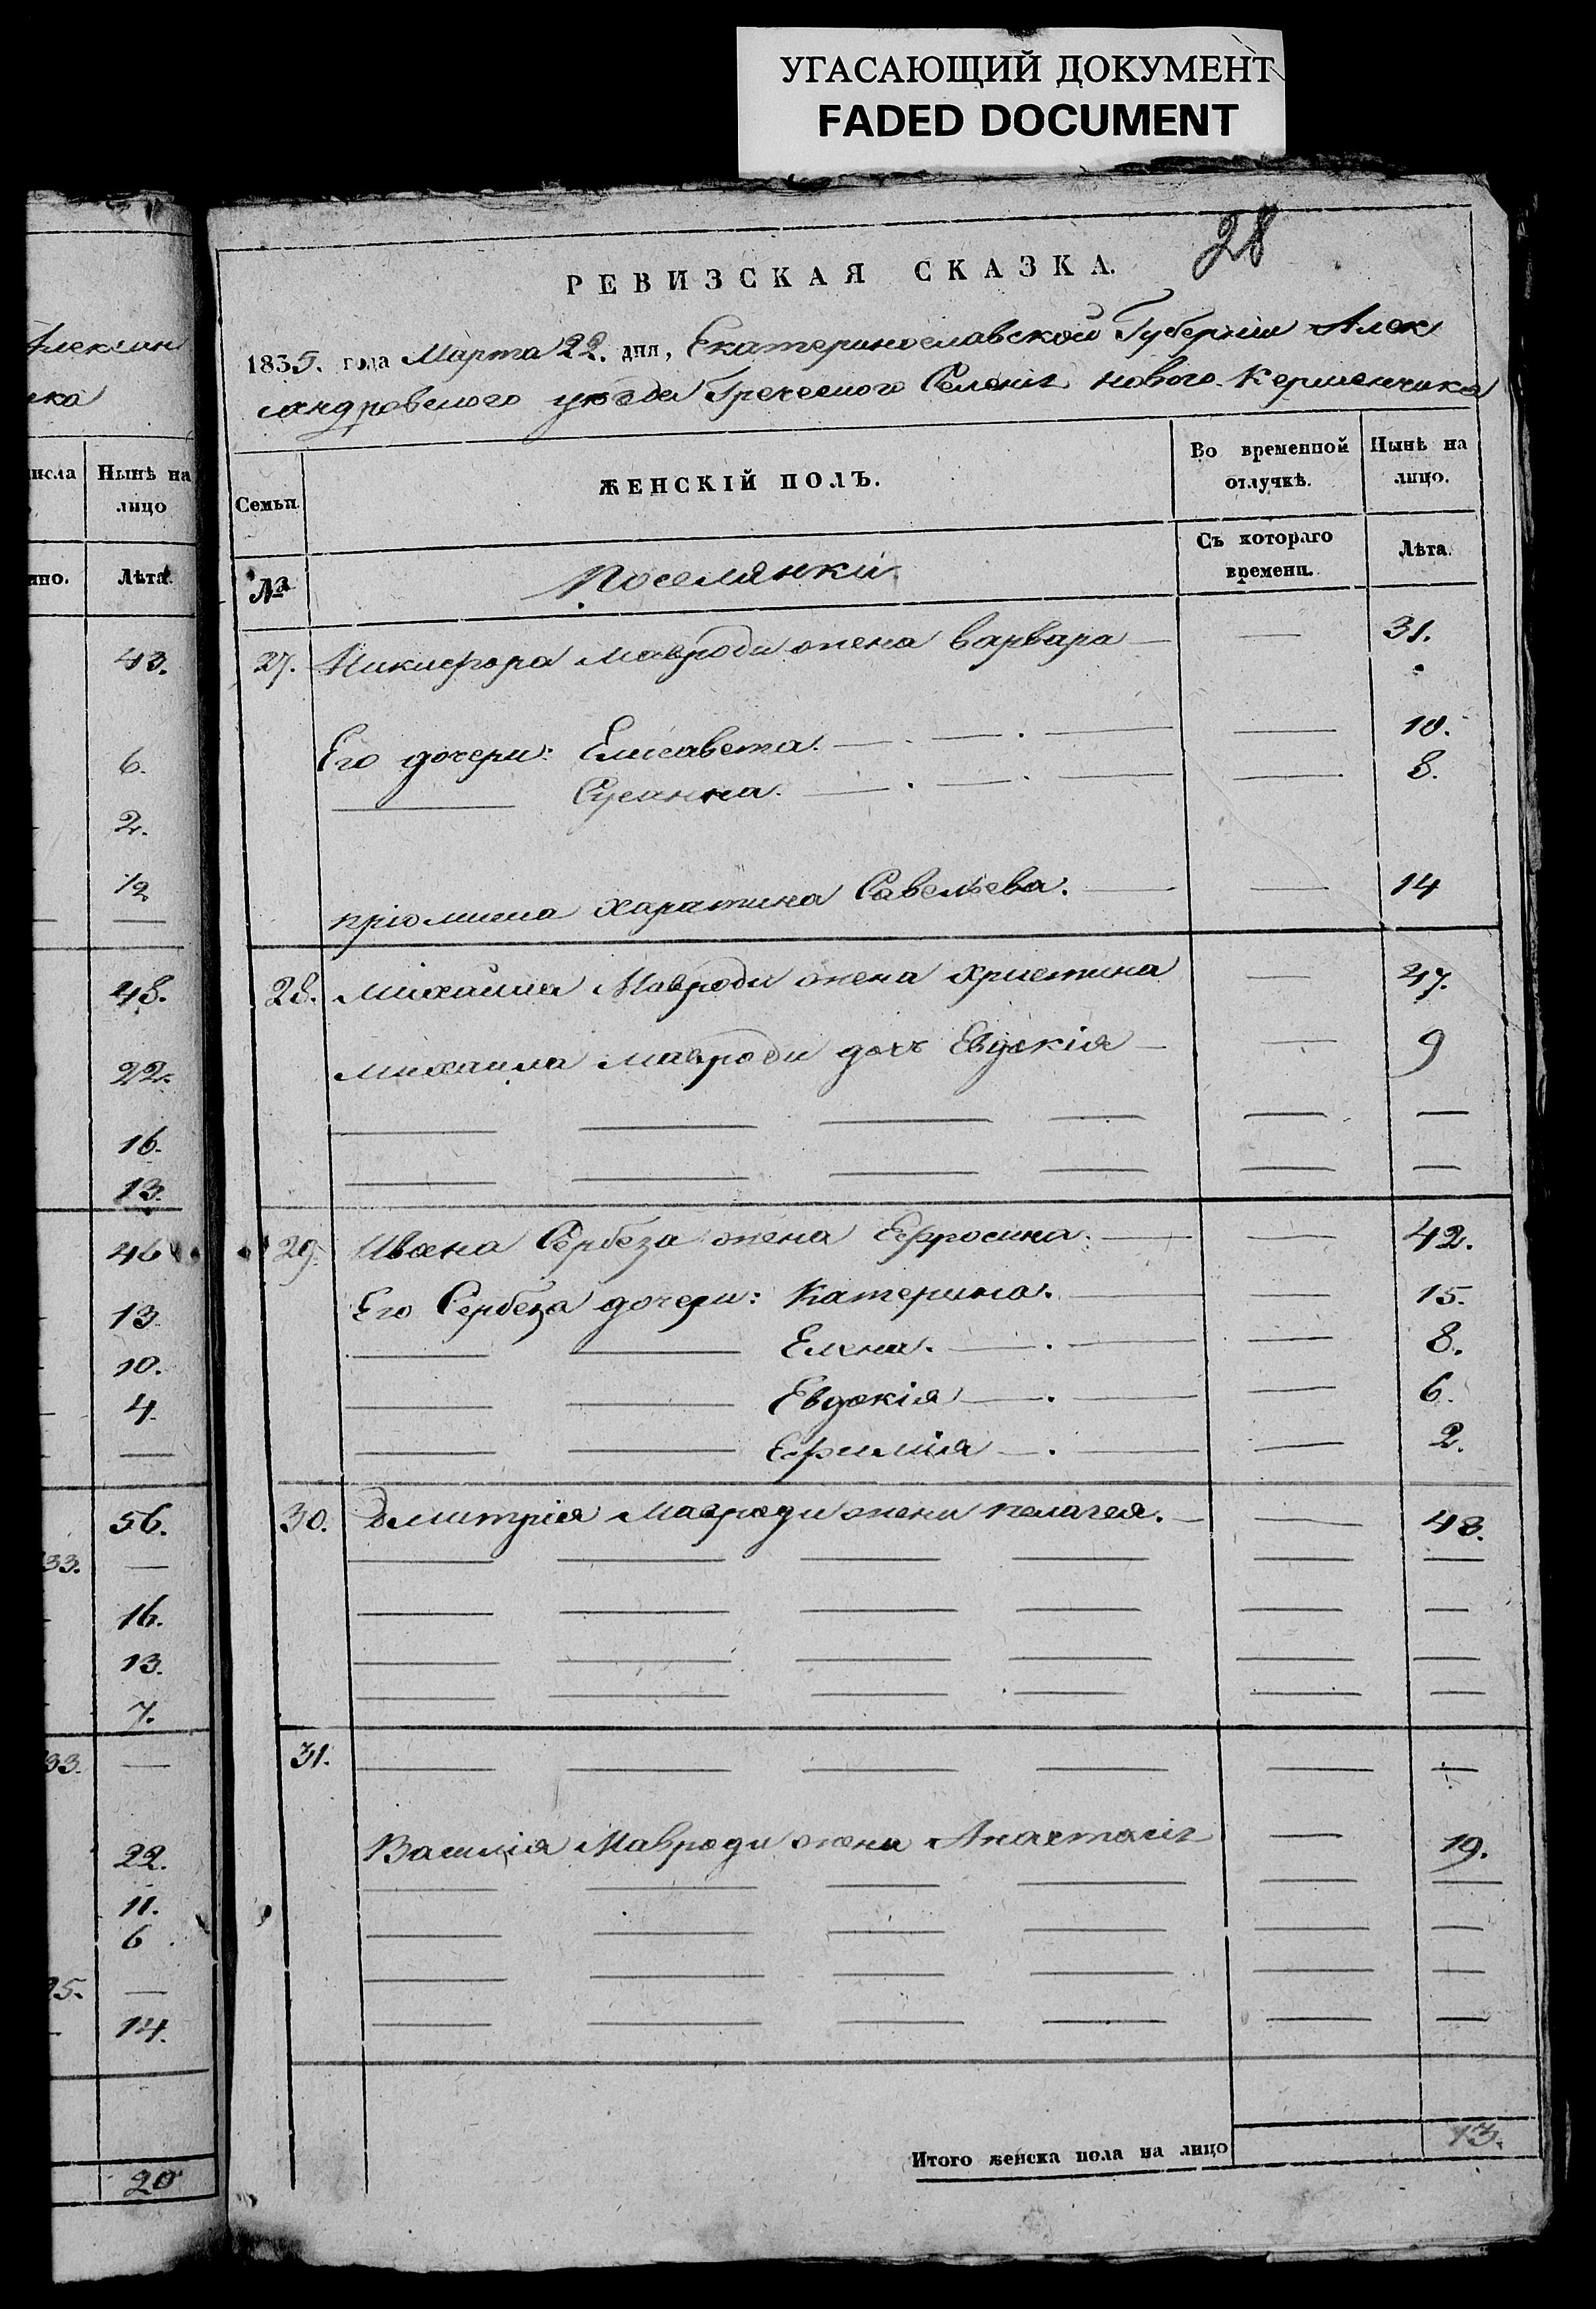 УГАСАЮЩИЙ ДОКУМЕНТ
FADED DOCUMENT
28
РЕВИЗСКАЯ СКАЗКА.
1835. года Марта 22. дня, Екатеринославской Губернии Алек
сандровского уезда Греческого Селения нового Керменчика
Семьи.
ЖЕНСКІЙ ПОЛЪ.
Во временной отлучкѣ.
Нынѣ на лицо.
№
Поселянки
Съ котораго времени.
Лѣта.
27. Никифора Мавроди жена варвара — — 31.
Его дочери: Елисавета. — . — . — — 10.
— Сусанна. — . — . — — 8.
пріомиша харатина Савельева. — — 14
28. Михаила Мавроди жена христина — 47.
михаила мавроди дочь Евдокія — — 9
29. Ивана Сербеза жена Ефросина. — — 42.
Его Сербеза дочери: Катерина. — — 15.
— — Елена. — . — — 8.
— — Евдокія — . — — 6.
— — Ефимія — . — — 2.
30. Дмитрія Мавроди жена пелагея. — — 48.
31.
Василія Мавроди жена Анастасія — 19.
Итого женска пола на лицо 13.
Алексан
ика
числа
Нынѣ на лицо
Лѣта.
43.
6.
2.
1/2
48.
22.
16.
13.
46
13.
10.
4.
56.
33. —
16.
13.
7.
33. —
22.
11.
6
35. —
14.
20